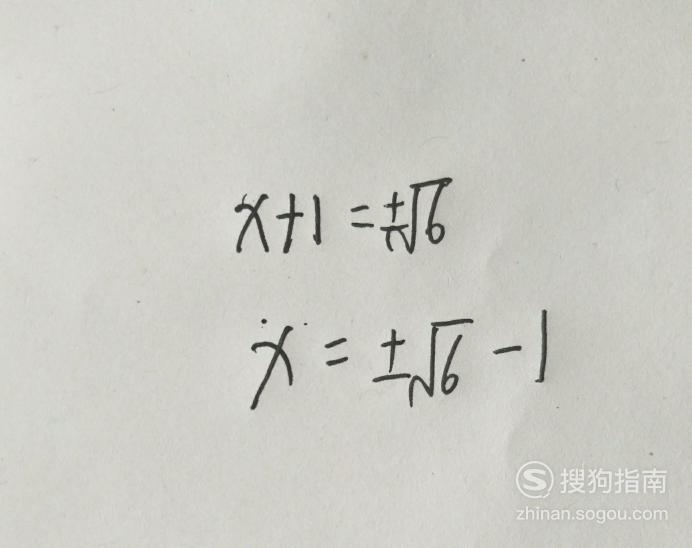 x+1=±√6
x=±√6-1
S 搜狗指南
zhinan.sogou.com